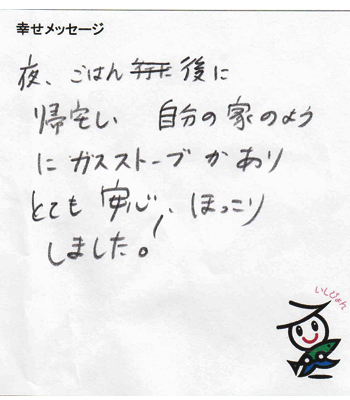 幸せメッセージ
夜、ごはん 後に
帰宅し 自分の家のよう
にガスストーブがあり
とても安心、ほっこり
しました。
いしぴょん